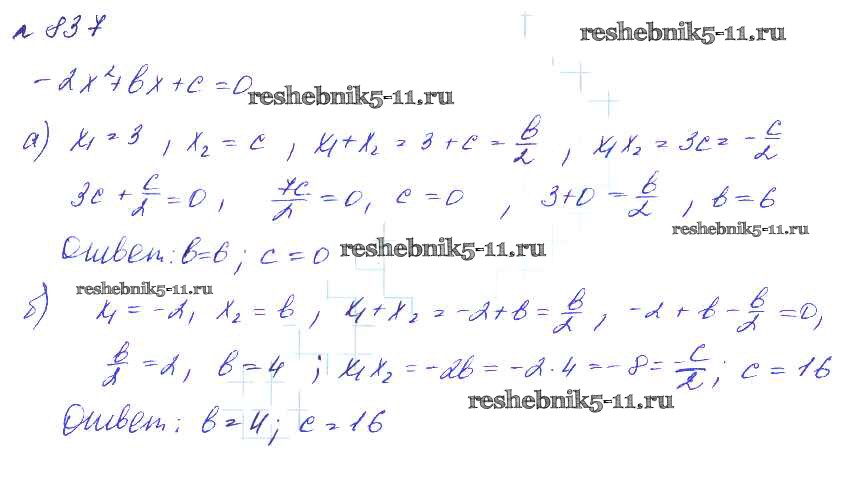 № 837
reshebnik5-11.ru
-2x²+bx+c=0
reshebnik5-11.ru
а) x₁=3, x₂=c, x₁+x₂=3+c=b/2, x₁x₂=3c=-c/2
3c+c/2=0, 7c/2=0, c=0, 3+0=b/2, b=6
reshebnik5-11.ru
Ответ: b=6; c=0
reshebnik5-11.ru
reshebnik5-11.ru
б) x₁=-2, x₂=b, x₁+x₂=-2+b=b/2, -2+b-b/2=0,
b/2=2, b=4; x₁x₂=-2b=-2·4=-8=-c/2; c=16
reshebnik5-11.ru
Ответ: b=4; c=16